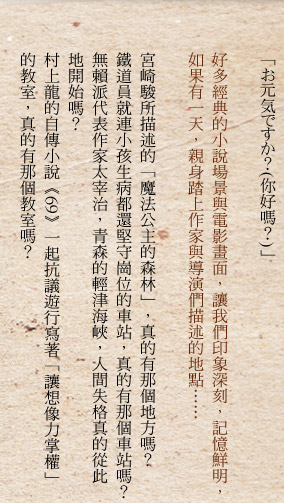 「お元気ですか？(你好嗎？)」
好多經典的小說場景與電影畫面，讓我們印象深刻，記憶鮮明，
如果有一天，親身踏上作家與導演們描述的地點……
宮崎駿所描述的「魔法公主的森林」，真的有那個地方嗎？
鐵道員就連小孩生病都還堅守崗位的車站，真的有那個車站嗎？
無賴派代表作家太宰治，青森的輕津海峽，人間失格真的從此
地開始嗎？
村上龍的自傳小說《69》一起抗議遊行寫著「讓想像力掌權」
的教室，真的有那個教室嗎？